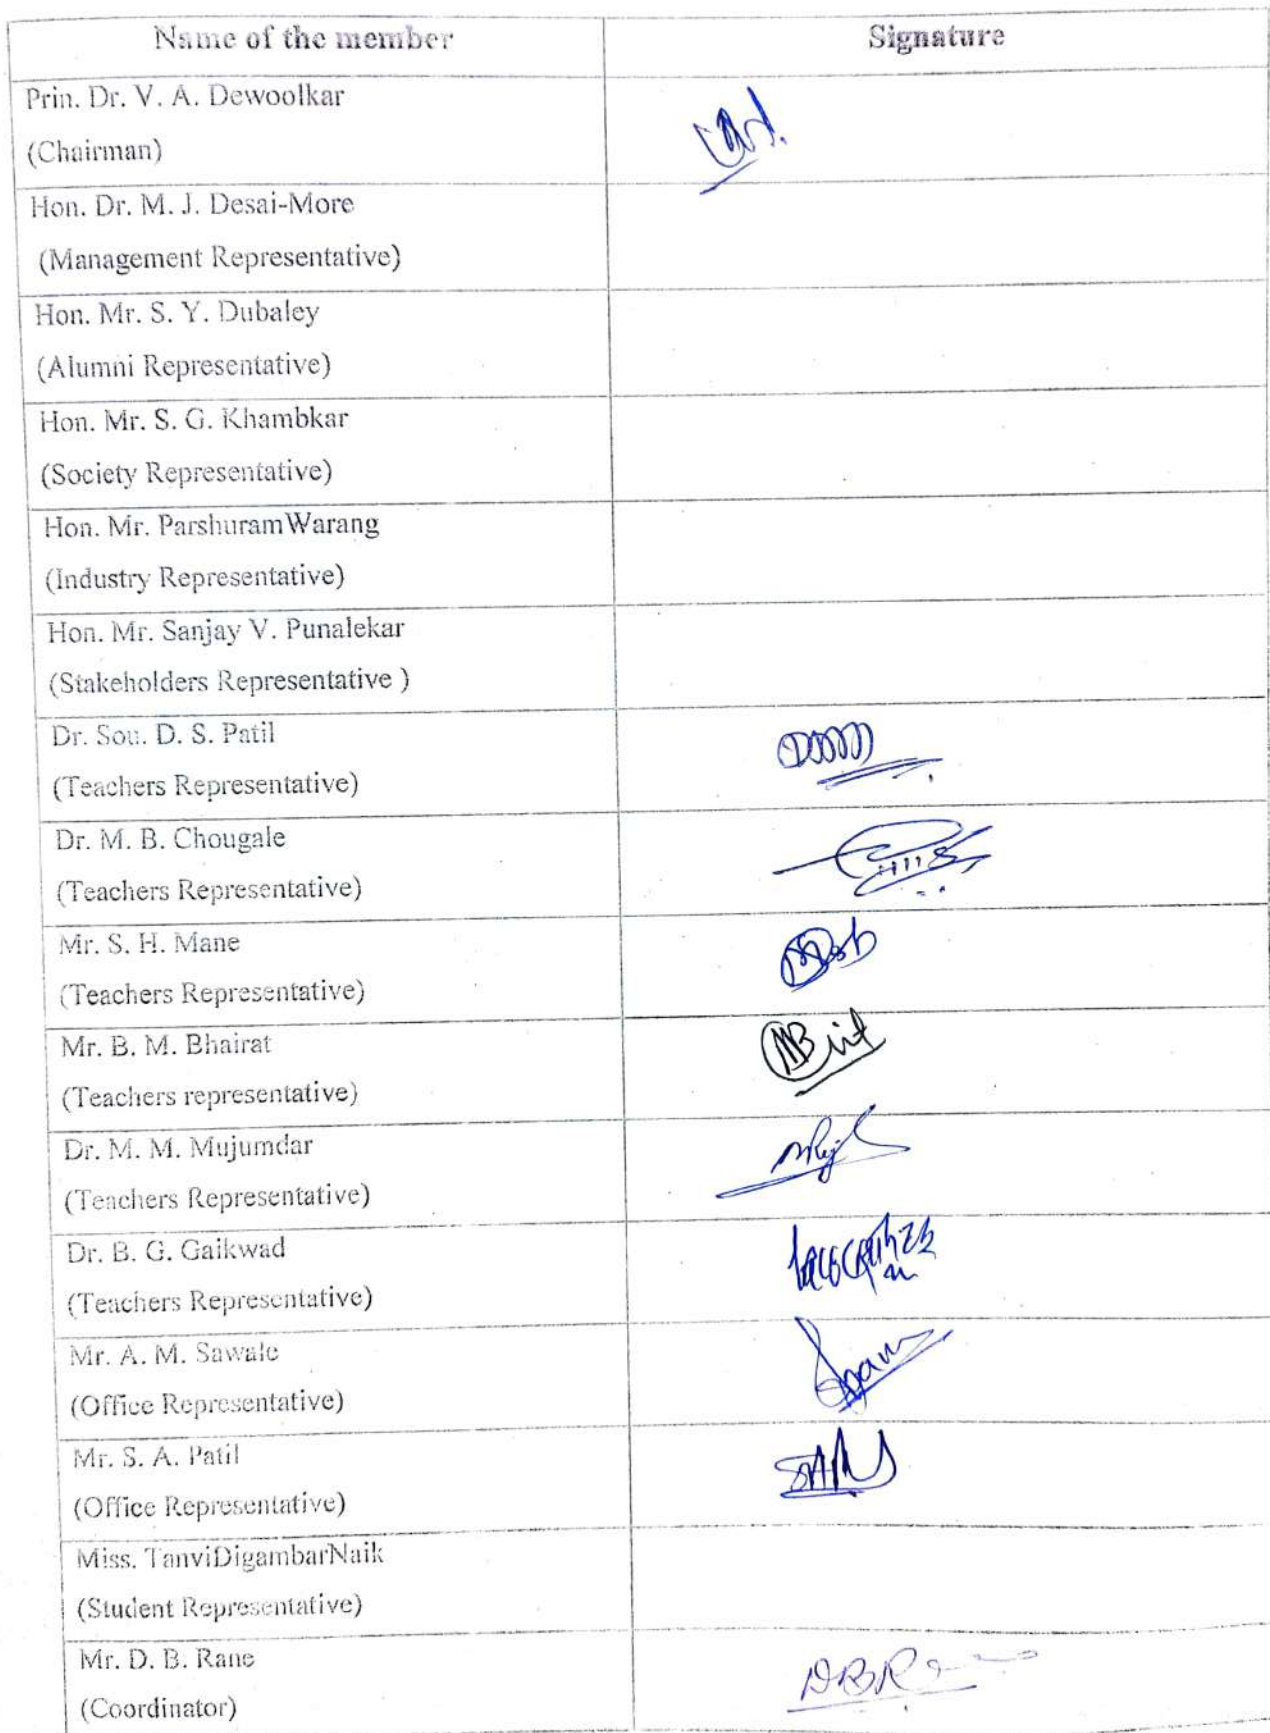 Name of the member
Signature
Prin. Dr. V. A. Dewoolkar
(Chairman)
Hon. Dr. M. J. Desai-More
(Management Representative)
Hon. Mr. S. Y. Dubaley
(Alumni Representative)
Hon. Mr. S. G. Khambkar
(Society Representative)
Hon. Mr. ParshuramWarang
(Industry Representative)
Hon. Mr. Sanjay V. Punalekar
(Stakeholders Representative )
Dr. Sou. D. S. Patil
(Teachers Representative)
Dr. M. B. Chougale
(Teachers Representative)
Mr. S. H. Mane
(Teachers Representative)
Mr. B. M. Bhairat
(Teachers representative)
Dr. M. M. Mujumdar
(Teachers Representative)
Dr. B. G. Gaikwad
(Teachers Representative)
Mr. A. M. Sawale
(Office Representative)
Mr. S. A. Patil
(Office Representative)
Miss. TanviDigambarNaik
(Student Representative)
Mr. D. B. Rane
(Coordinator)